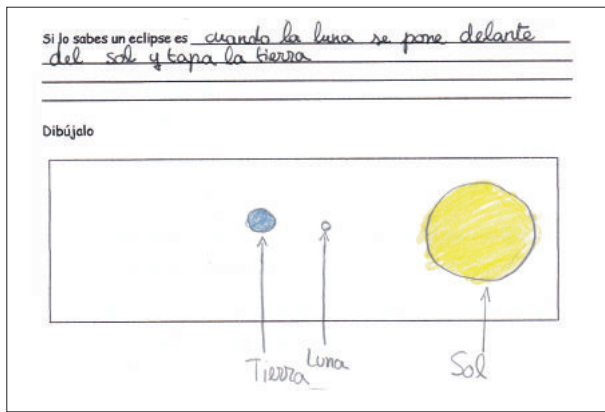 Si lo sabes un eclipse es cuando la luna se pone delante
del sol y tapa la tierra
Dibújalo
Tierra Luna Sol